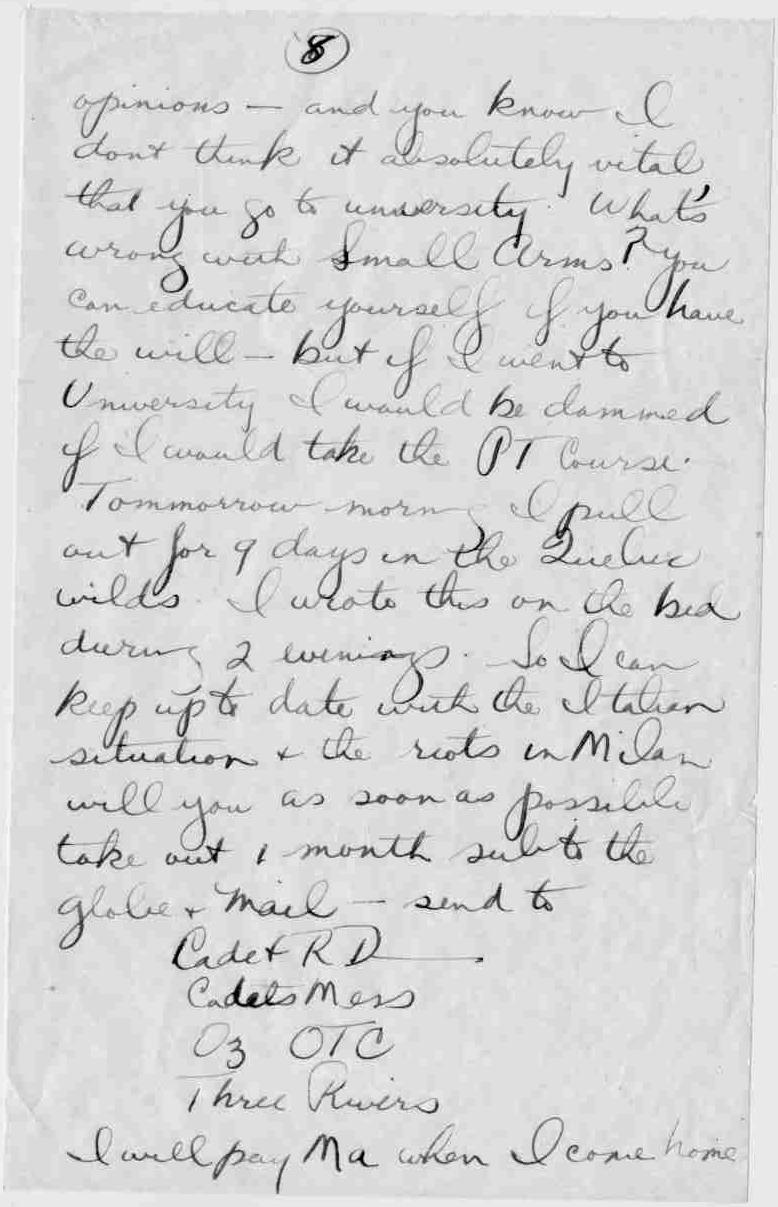 8
opinions — and you know I
dont think it absolutely vital
that you go to university. What's
wrong with Small Arms? You
can educate yourself if you have
the will — but if I went to
University I would be dammed
if I would take the PT Course.
Tommorrow morning I pull
out for 9 days in the Quebec
wilds. I wrote this on the bed
during 2 evenings. So I can
keep up to date with the Italian
situation + the riots in Milan
will you as soon as possible
take out 1 month sub to the
Globe + Mail — send to
Cadet R D
Cadets Mess
O3 OTC
Three Rivers
I will pay Ma when I come home